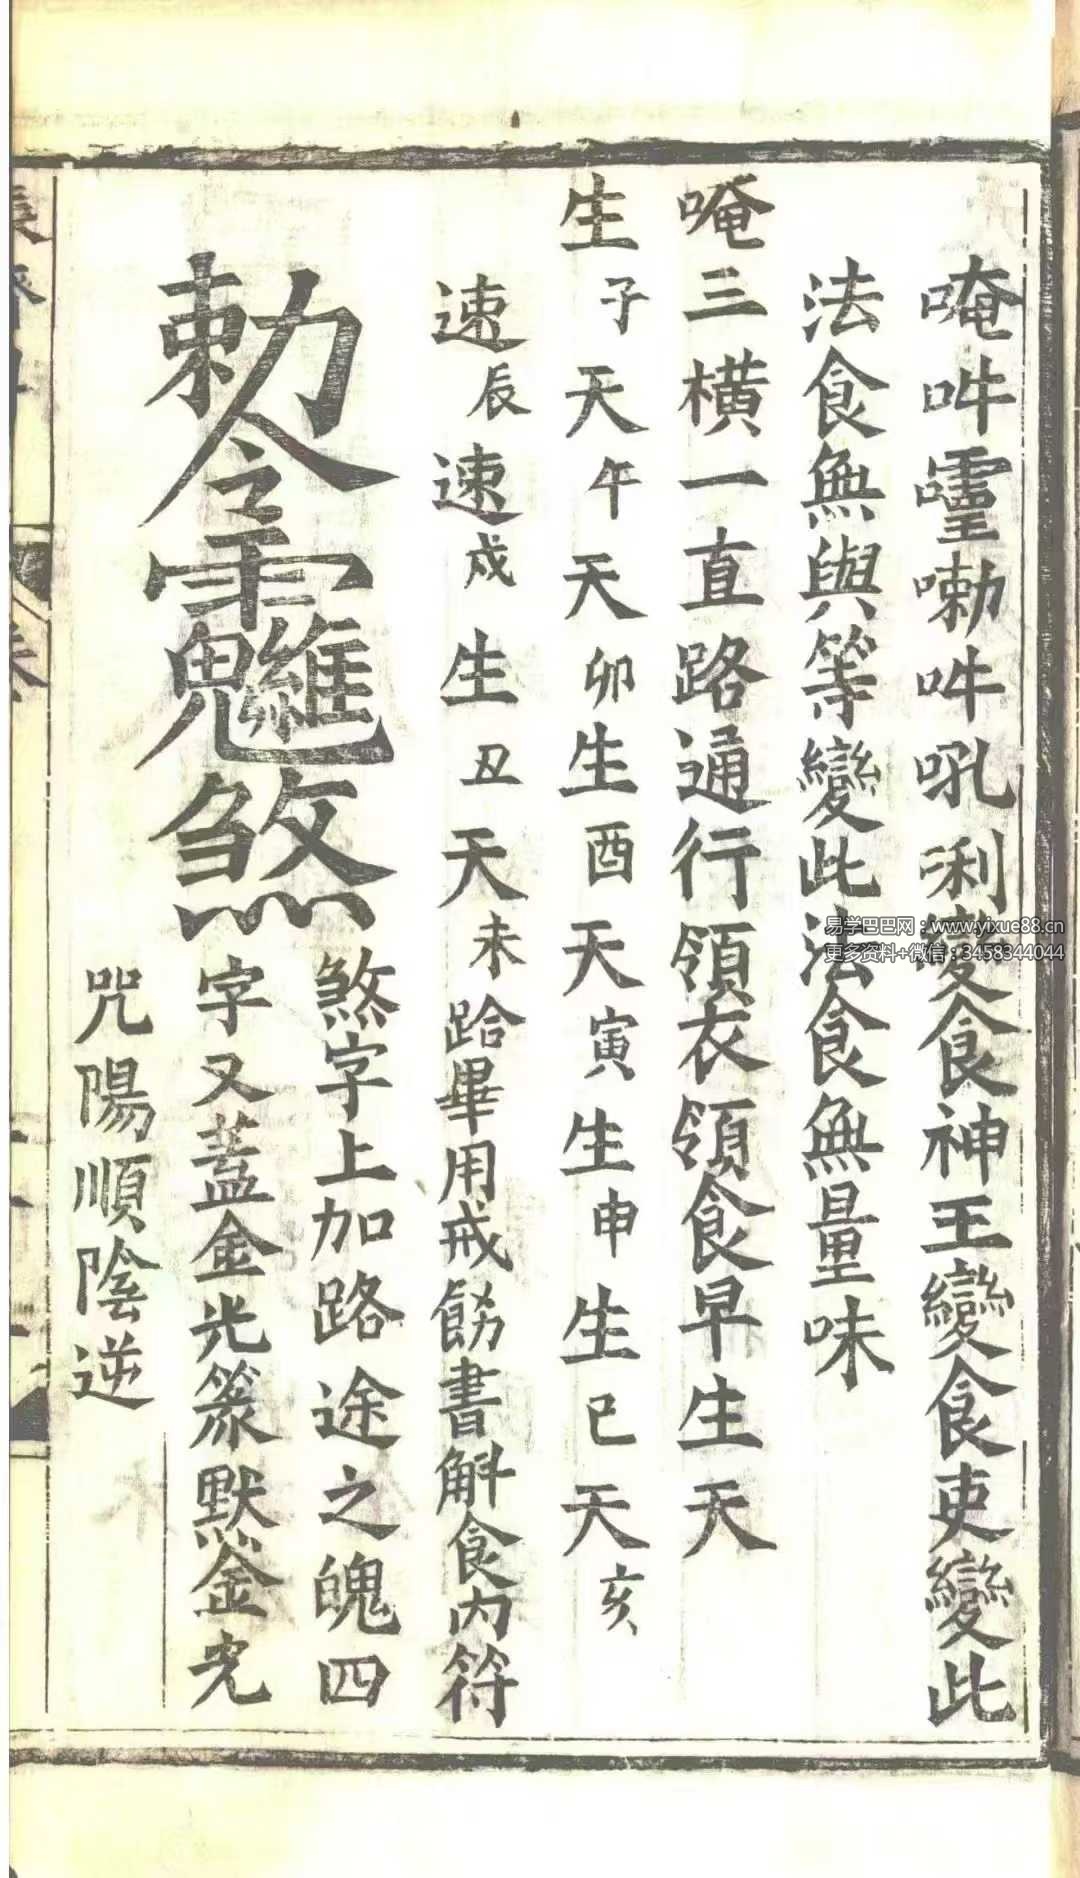 唵吽㘕嘞吽吼唎變食神王變食吏變此
法食無與等變此法食無量味
唵三橫一直路通行領衣領食早生天
生子天午天卯生酉天寅生申生巳天亥
速辰速戌生丑天未跲畢用戒飭書斛食內符
勅令 煞
煞字上加路途之魄四
字又蓋金光篆默金光
咒陽順陰逆
易学巴巴网：www.yixue88.cn
更多资料+微信：3458344044